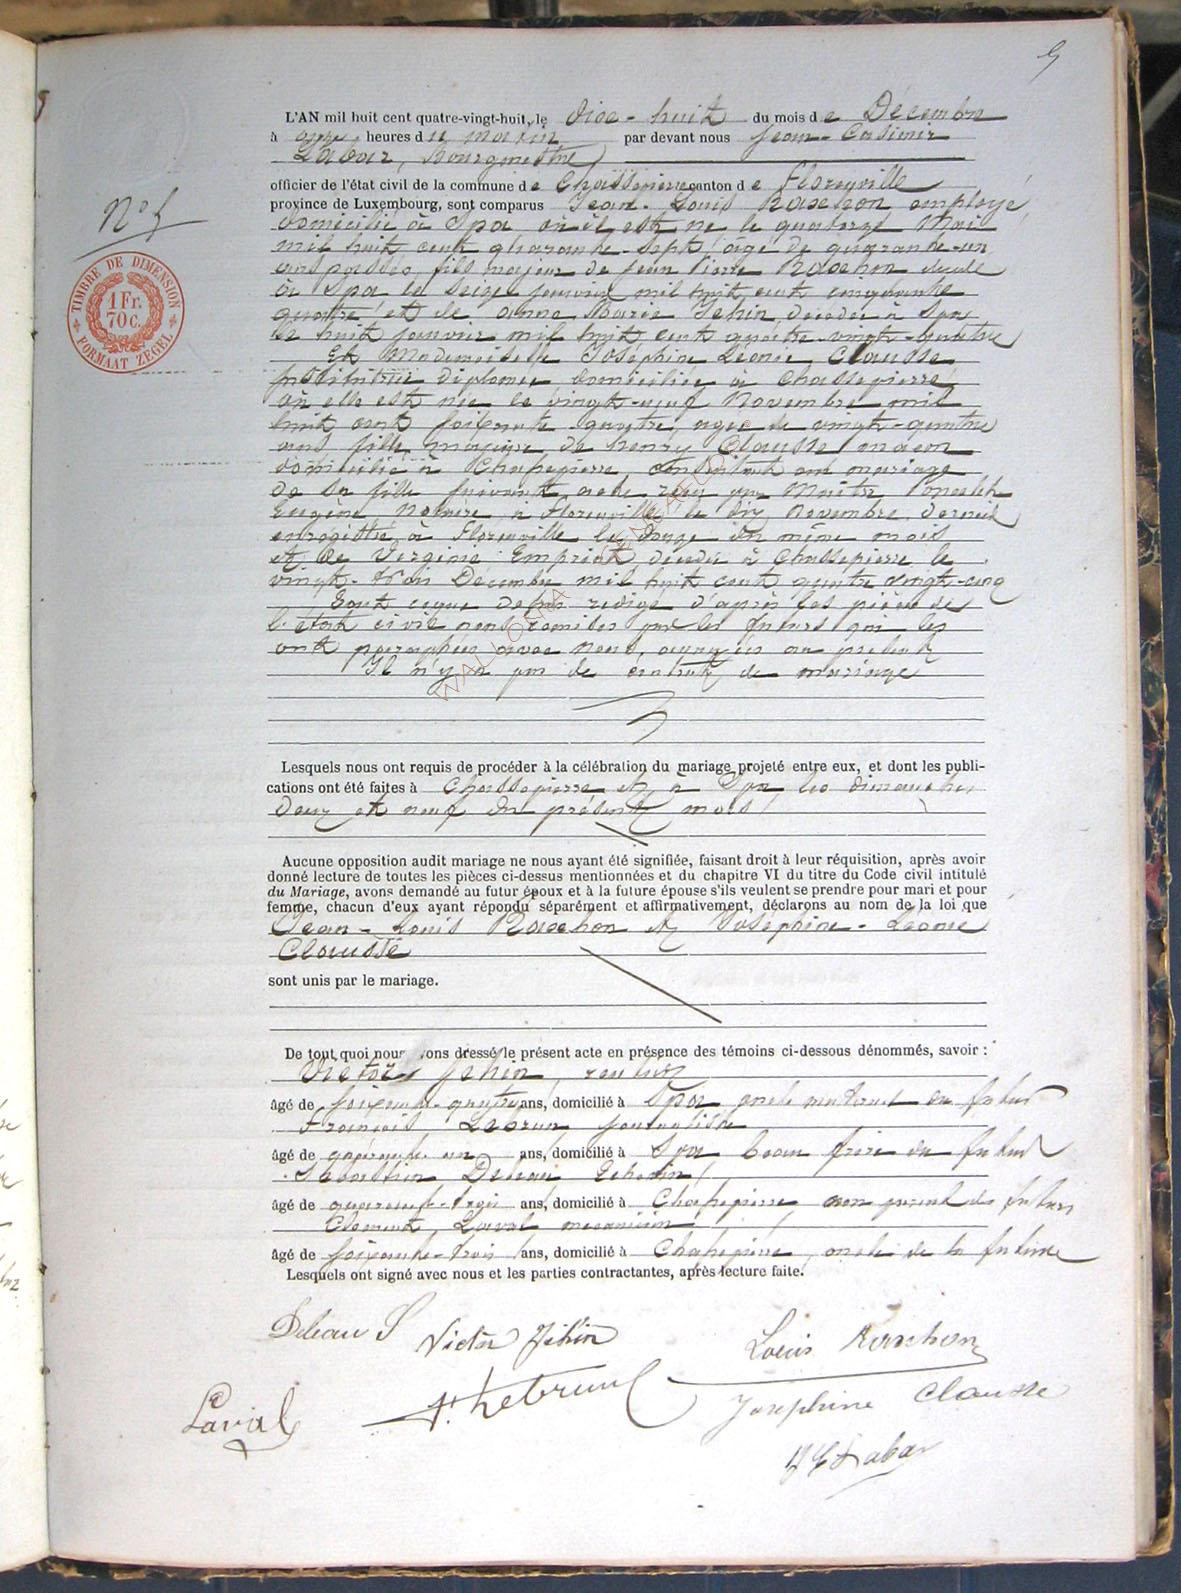 5
L'AN mil huit cent quatre-vingt-huit, le dixe-huit du mois de Décembre
à onze heures du matin par devant nous Jean-Casimir
Labar, Bourgmestre
officier de l'état civil de la commune de Chassepierre canton de Florenville
province de Luxembourg, sont comparus Jean-Louis Racshon employé
domicilié à Spa où il est né le quatorze Mai
mil huit cent quarante-sept, âgé de quarante-un
ans passés, fils majeur de Jean Pierre Rachon décédé
à Spa le seize janvier mil huit cent cinquante
quatre et de Anne Marie Jehin décédée à Spa
le huit janvier mil huit cent quatre-vingt-quatre
Et Mademoiselle Joséphine Léonie Clausse
Institutrice diplomée domiciliée à Chassepierre
où elle est née le vingt-neuf Novembre mil
huit cent soixante quatre, agée de vingt-quatre
ans fille majeure de Henry Clausse maçon
domicilié à Chassepierre, consentant au mariage
de sa fille suivant acte reçu par Maître
Eugène Notaire à Florenville le dix Novembre dernier
enregistré à Florenville le douze du même mois
et de Virginie Empriot décédée à Chassepierre le
vingt-trois Décembre mil huit cent quatre vingt-cinq
Tout ceque dessus redigé d'après les pièces de
l'état civil nous remises par les futurs qui les
ont paraphées avec nous, annexées au présent
Il n'y a pas de contrat de mariage
Lesquels nous ont requis de procéder à la célébration du mariage projeté entre eux, et dont les publi-
cations ont été faites à Chassepierre et à Spa les dimanches
deux et neuf du présent mois
Aucune opposition audit mariage ne nous ayant été signifiée, faisant droit à leur réquisition, après avoir
donné lecture de toutes les pièces ci-dessus mentionnées et du chapitre VI du titre du Code civil intitulé
du Mariage, avons demandé au futur époux et à la future épouse s'ils veulent se prendre pour mari et pour
femme, chacun d'eux ayant répondu séparément et affirmativement, déclarons au nom de la loi que
Jean-Louis Rachon et Joséphine-Léonie
Clausse
sont unis par le mariage.
De tout quoi nous avons dressé le présent acte en présence des témoins ci-dessous dénommés, savoir :
Victor Jehin, rentier
âgé de soixante-quatre ans, domicilié à Spa oncle maternel du futur
François Lebrun journaliste
âgé de quarante un ans, domicilié à Spa beau frère du futur
Sébastien Deleau Echevin
âgé de quarante-trois ans, domicilié à Chassepierre non parent des futurs
Clément Laval mécanicien
âgé de soixante-trois ans, domicilié à Chassepierre, oncle de la future
Lesquels ont signé avec nous et les parties contractantes, après lecture faite.
Deleau S Victor Jehin Louis Raxhon
Laval F. Lebrun Joséphine Clausse
J C Labar
N° 5
TIMBRE DE DIMENSION
1 Fr.
70 C.
FORMAAT ZEGEL